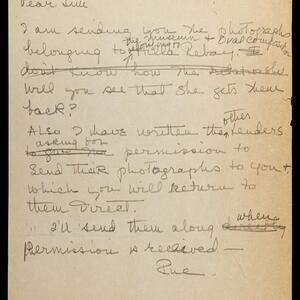 Dear Sue
I am sending you the photographs
the museum +
belonging to Hilla Rebay. I
don't know how the
Will you see that she gets them
back?
other
Also I have written the lenders
asking for
to give me permission to
send their photographs to you +
which you will return to
them direct.
when
I'll send them along directly
permission is received —
Rue